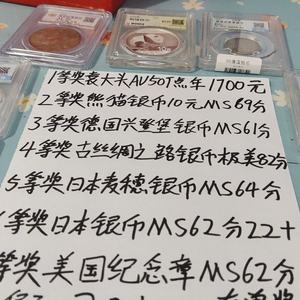 1等奖袁大头AU50T点年1700元
2等奖熊猫银币10元MS69分
3等奖德国兴登堡银币MS61分
4等奖古丝绸之路银币极美82分
5等奖日本麦穗银币MS64分
等奖日本银币MS62分22+
等奖美国纪念章MS62分